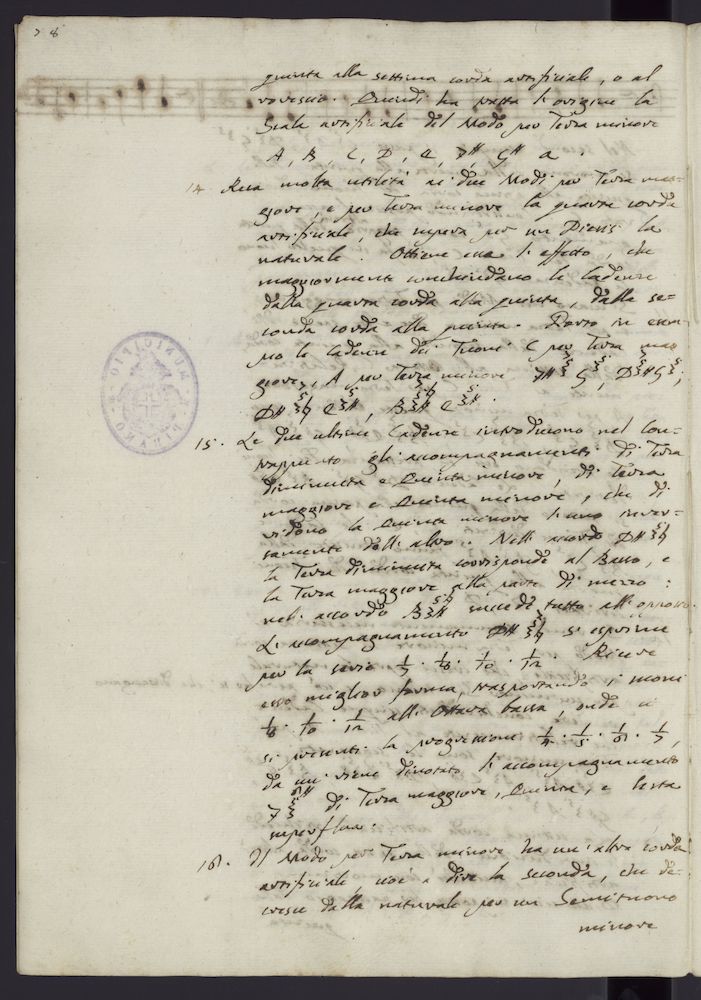 78
quinta alla settima corda artificiale, o al
rovescio. Quindi ha tratta l'origine la
Scala artificiale del Modo per Terza minore
A, B, C, D, E, F#, G#, a.
14. Reca molta utilità ai due Modi per Terza mag=
giore, e per Terza minore la quarta corda
artificiale, che supera per un Diesis la
naturale. Ottiene essa l'effetto, che
maggiormente conchiudano le Cadenze
dalla quarta corda alla quinta, dalla se=
conda corda alla quinta. Porto in esem=
pio le Cadenze dei Tuoni C per Terza mag
giore, A per Terza minore
15. Le due ultime Cadenze introducono nel Con=
trappunto gli accompagnamenti di Terza
diminuta e Quinta minore, di Terza
maggiore e Quinta minore, che di
vidono la Quinta minore l'uno inver=
samente dall'altro. Nell'accordo D# 5 3
la Terza diminuta corrisponde al Basso, e
la Terza maggiore alla parte di mezzo:
nell'accordo B 5 3# succede tutto all'opposto.
L'accompagnamento D# 5 3 si esprime
per la serie 1/7 . 1/8 . 1/10 . 1/12 . Riceve
esso miglior forma, trasportando i suoni
1/8 . 1/10 . 1/12 all'Ottava bassa, onde si
si presenti la progressione 1/4 . 1/5 . 1/6 . 1/7,
da cui viene dinotato l'accompagnamento
di Terza maggiore, Quinta, e Sesta
superflua.
16. Il Modo per Terza minore ha un'altra corda
artificiale, cioè a dire la seconda, che de=
cresce dalla naturale per un Semituono
minore